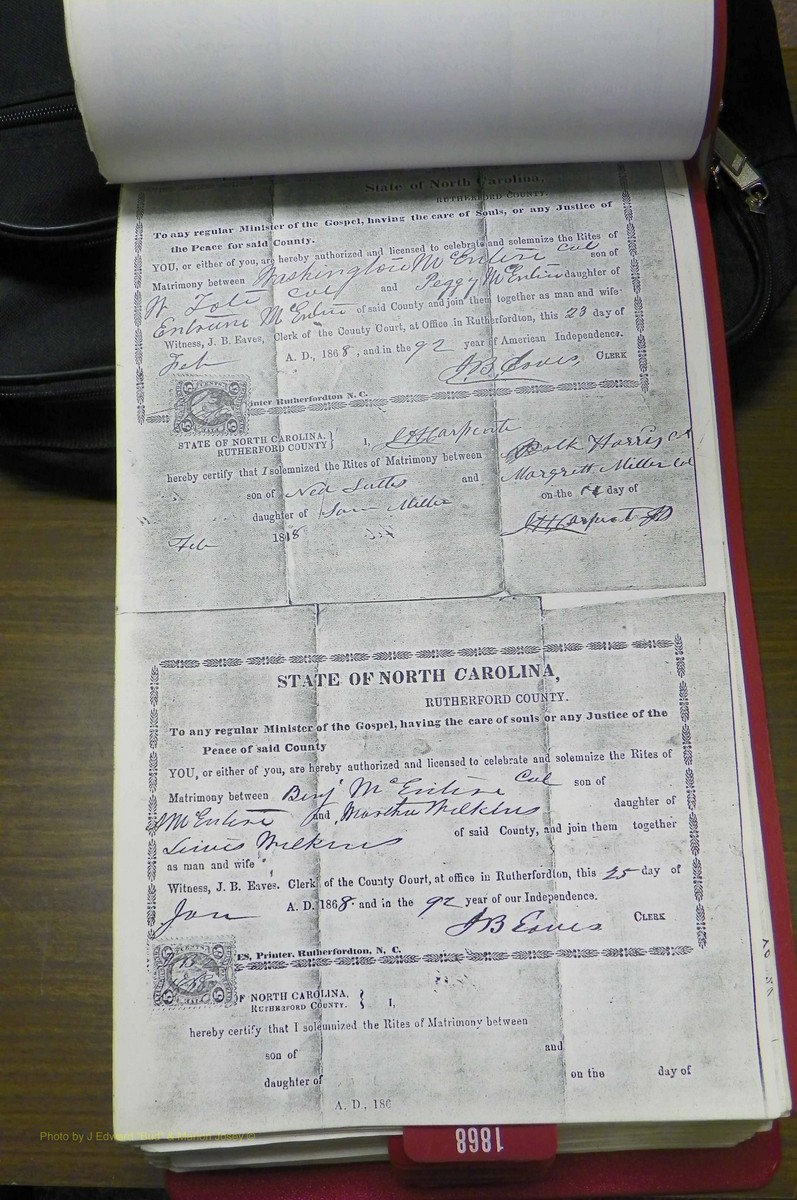 State of North Carolina,
RUTHERFORD COUNTY.
To any regular Minister of the Gospel, having the care of Souls, or any Justice of
the Peace for said County.
YOU, or either of you, are hereby authorized and licensed to celebrate and solemnize the Rites of
Matrimony between Washington McEntire Col son of
W Col and Peggy McEntire daughter of
McEntire of said County and join them together as man and wife
Witness, J. B. Eaves, Clerk of the County Court, at Office in Rutherfordton, this 23 day of
Feb A. D., 1868, and in the 92 year of American Independence.
J B Eaves, CLERK
inter Rutherfordton N. C.
STATE OF NORTH CAROLINA,
RUTHERFORD COUNTY } I, J H Carpenter
hereby certify that I solemnized the Rites of Matrimony between Polk Harris Col
son of Ned and Margrett Miller Col
daughter of Sam Miller on the day of
Feb 1868 J H Carpenter JP
STATE OF NORTH CAROLINA,
RUTHERFORD COUNTY.
To any regular Minister of the Gospel, having the care of souls or any Justice of the
Peace of said County
YOU, or either of you, are hereby authorized and licensed to celebrate and solemnize the Rites of
Matrimony between Benj McEntire Col son of
McEntire and Martha Wilkins daughter of
Lewis Wilkins of said County, and join them together
as man and wife
Witness, J. B. Eaves. Clerk of the County Court, at office in Rutherfordton, this 25 day of
Jan A. D. 1868. and in the 92 year of our Independence.
J B Eaves CLERK
ES, Printer, Rutherfordton, N. C.
F NORTH CAROLINA,
RUTHERFORD COUNTY. } I,
hereby certify that I solemnized the Rites of Matrimony between
son of and
daughter of on the day of
A. D., 186
1868